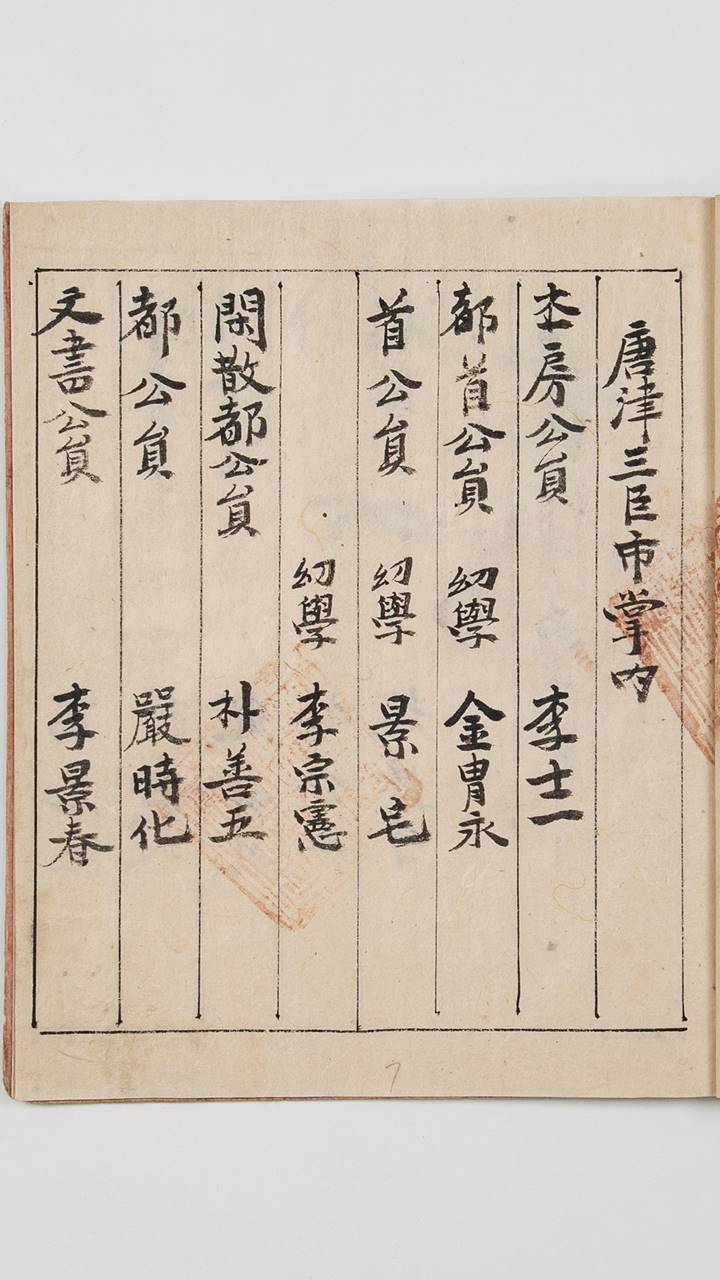 唐津三巨市掌内
本房公員 李士一
都首公員 幼學 金胄永
首公員 幼學 景宅
幼學 李宗憲
閑散都公員 朴善五
都公員 嚴時化
文書公員 李景春
7